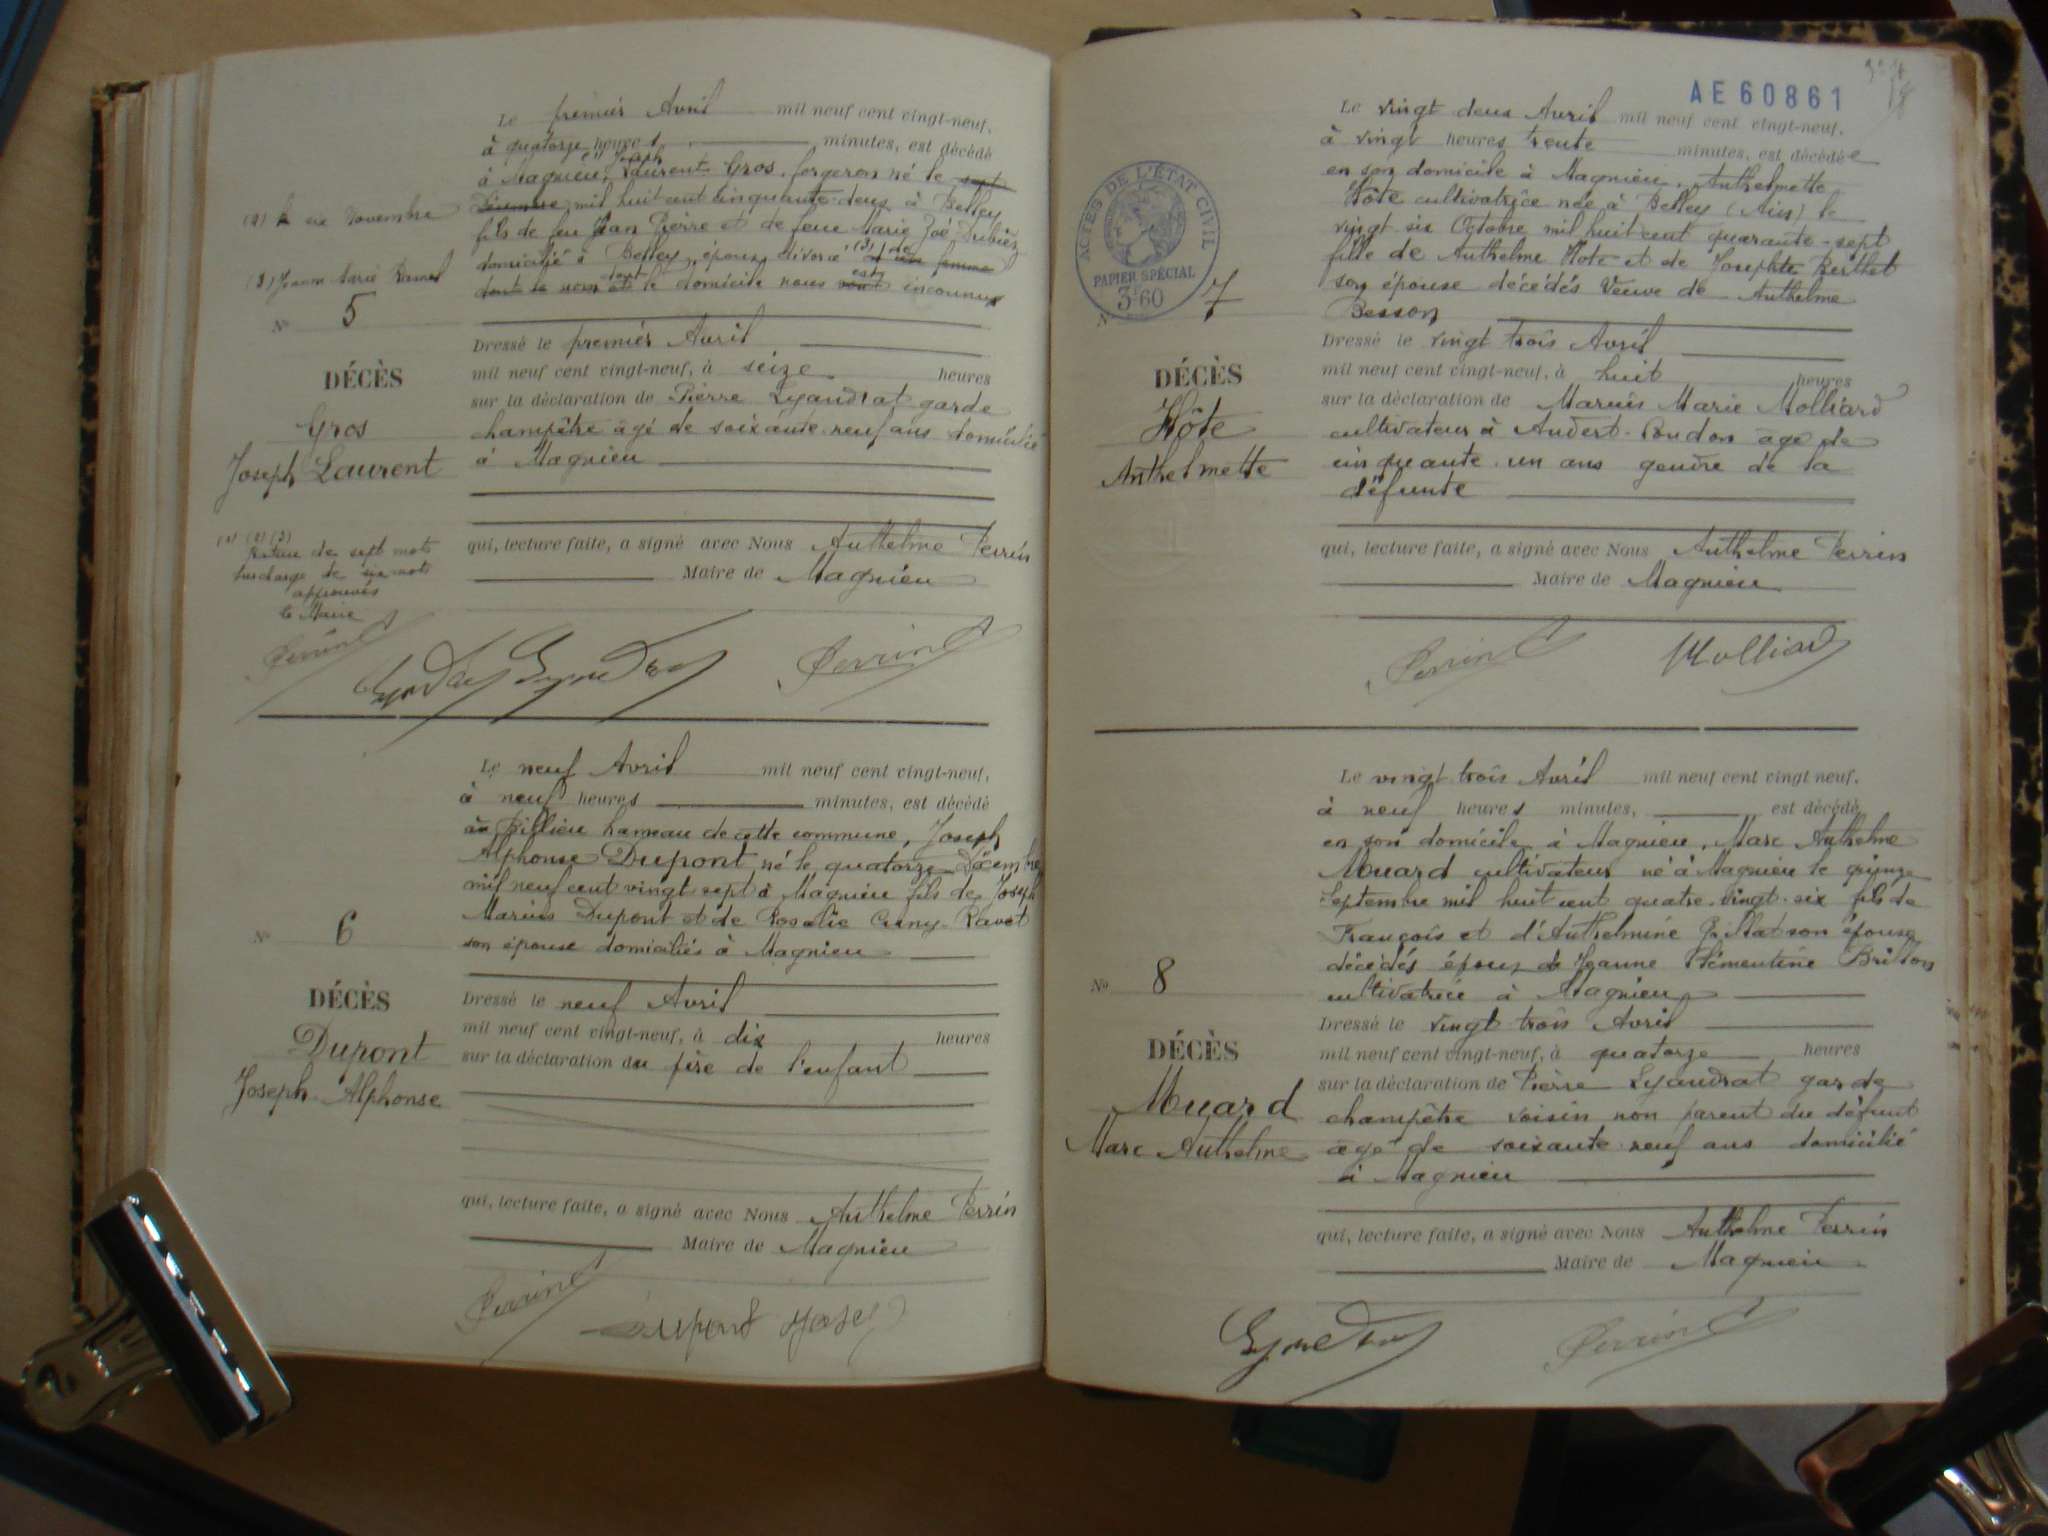 Le premier Avril mil neuf cent vingt-neuf,
à quatorze heures minutes, est décédé
(1) Joseph
à Magnieu, Laurent Gros, forgeron né le sept
(2) le Novembre
mil huit cent cinquante-deux à Belley
fils de feu Jean Pierre et de feue Marie Zoé
domicilié à Belley, époux divorcé (3) de d'un femme
(3) Jeanne Marie
dont le nom et le domicile nous sont est inconnus
dont
N° 5
Dressé le premier Avril
DÉCÈS
mil neuf cent vingt-neuf, à seize heures
sur la déclaration de Pierre Lyaudrat garde
Gros
champêtre âgé de soixante neuf ans domicilié
Joseph Laurent
à Magnieu
(1) (2) (3)
Rature de sept mots
surcharge de six mots
approuvés
le Maire
Perrin
qui, lecture faite, a signé avec Nous Anthelme Perrin
Maire de Magnieu
Perrin
Le neuf Avril mil neuf cent vingt-neuf,
à neuf heures minutes, est décédé
à Billieu hameau de cette commune, Joseph
Alphonse Dupont né le quatorze Décembre
mil neuf cent vingt sept à Magnieu fils de Joseph
Marius Dupont et de Rosalie Cuny-Ravet
N° 6
son épouse domiciliés à Magnieu
DÉCÈS
Dressé le neuf Avril
mil neuf cent vingt-neuf, à dix heures
Dupont
sur la déclaration du père de l'enfant
Joseph Alphonse
qui, lecture faite, a signé avec Nous Anthelme Perrin
Maire de Magnieu
Perrin
Dupont Joseph
AE 60861
Le vingt deux Avril mil neuf cent vingt-neuf,
à vingt heures trente minutes, est décédée
en son domicile à Magnieu, Anthelmette
Hôte cultivatrice née à Belley (Ain) le
vingt six Octobre mil huit cent quarante-sept
fille de Anthelme Hote et de Josephte Berthet
son épouse décédés Veuve de Anthelme
Besson
ACTES DE L'ÉTAT CIVIL
PAPIER SPÉCIAL
3F60
N° 7
Dressé le vingt trois Avril
DÉCÈS
mil neuf cent vingt-neuf, à huit heures
sur la déclaration de Marius Marie Molliard
Hôte
cultivateur à Andert-Condon âgé de
Anthelmette
cinquante un ans gendre de la
défunte
qui, lecture faite, a signé avec Nous Anthelme Perrin
Maire de Magnieu
Perrin Molliard
Le vingt trois Avril mil neuf cent vingt-neuf,
à neuf heures minutes, est décédé
en son domicile à Magnieu, Marc Anthelme
Muard cultivateur né à Magnieu le quinze
Septembre mil huit cent quatre-vingt-six fils de
François et d'Anthelmine Grillat son épouse
décédés époux de Jeanne Clémentine Brillon
N° 8
cultivatrice à Magnieu
Dressé le vingt trois Avril
DÉCÈS
mil neuf cent vingt-neuf, à quatorze heures
sur la déclaration de Pierre Lyaudrat garde
Muard
champêtre voisin non parent du défunt
Marc Anthelme
âgé de soixante neuf ans domicilié
à Magnieu
qui, lecture faite, a signé avec Nous Anthelme Perrin
Maire de Magnieu
Perrin